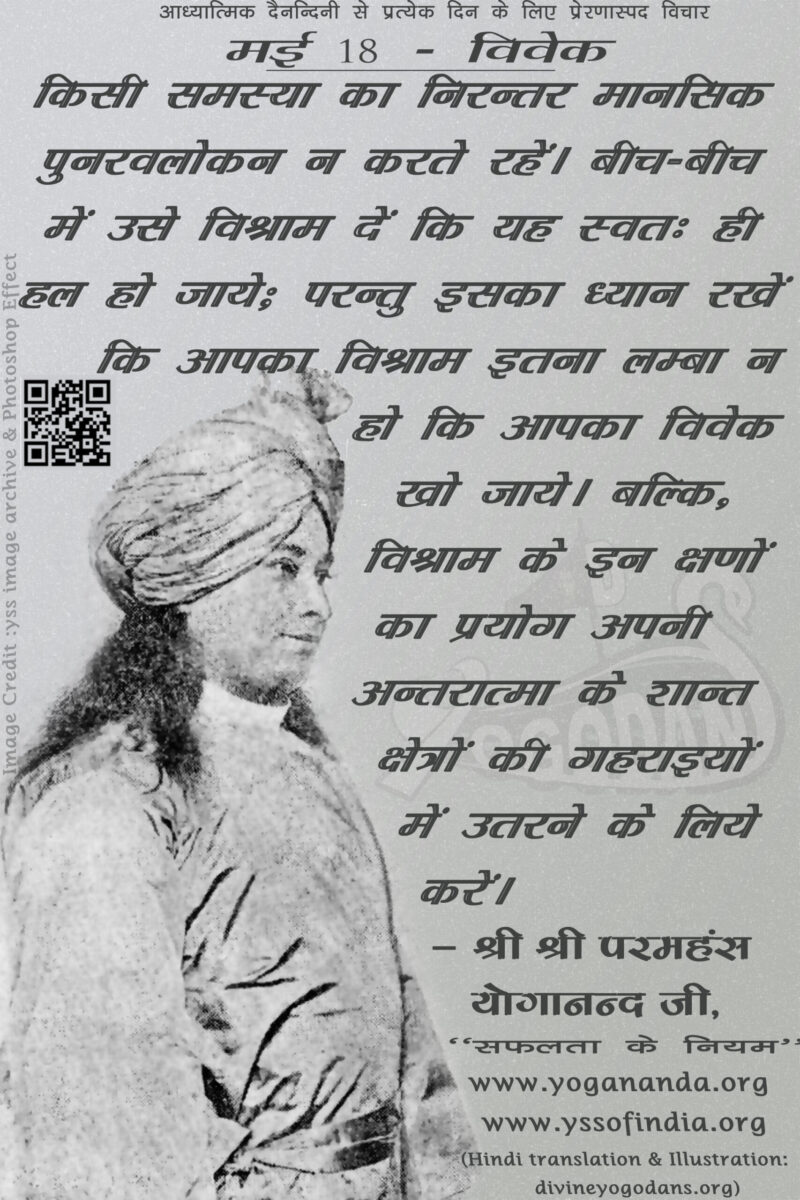 आध्यात्मिक दैनन्दिनी से प्रत्येक दिन के लिए प्रेरणास्पद विचार
मई 18 - विवेक
किसी समस्या का निरन्तर मानसिक
पुनरवलोकन न करते रहें। बीच-बीच
में उसे विश्राम दें कि यह स्वतः ही
हल हो जाये; परन्तु इसका ध्यान रखें
कि आपका विश्राम इतना लम्बा न
हो कि आपका विवेक
खो जाये। बल्कि,
विश्राम के इन क्षणों
का प्रयोग अपनी
अन्तरात्मा के शान्त
क्षेत्रों की गहराइयों
में उतरने के लिये
करें।
– श्री श्री परमहंस
योगानन्द जी,
‘‘सफलता के नियम’’
www.yogananda.org
www.yssofindia.org
(Hindi translation & Illustration:
divineyogodans.org)
Image Credit :yss image archive & Photoshop Effect
YOGODAN